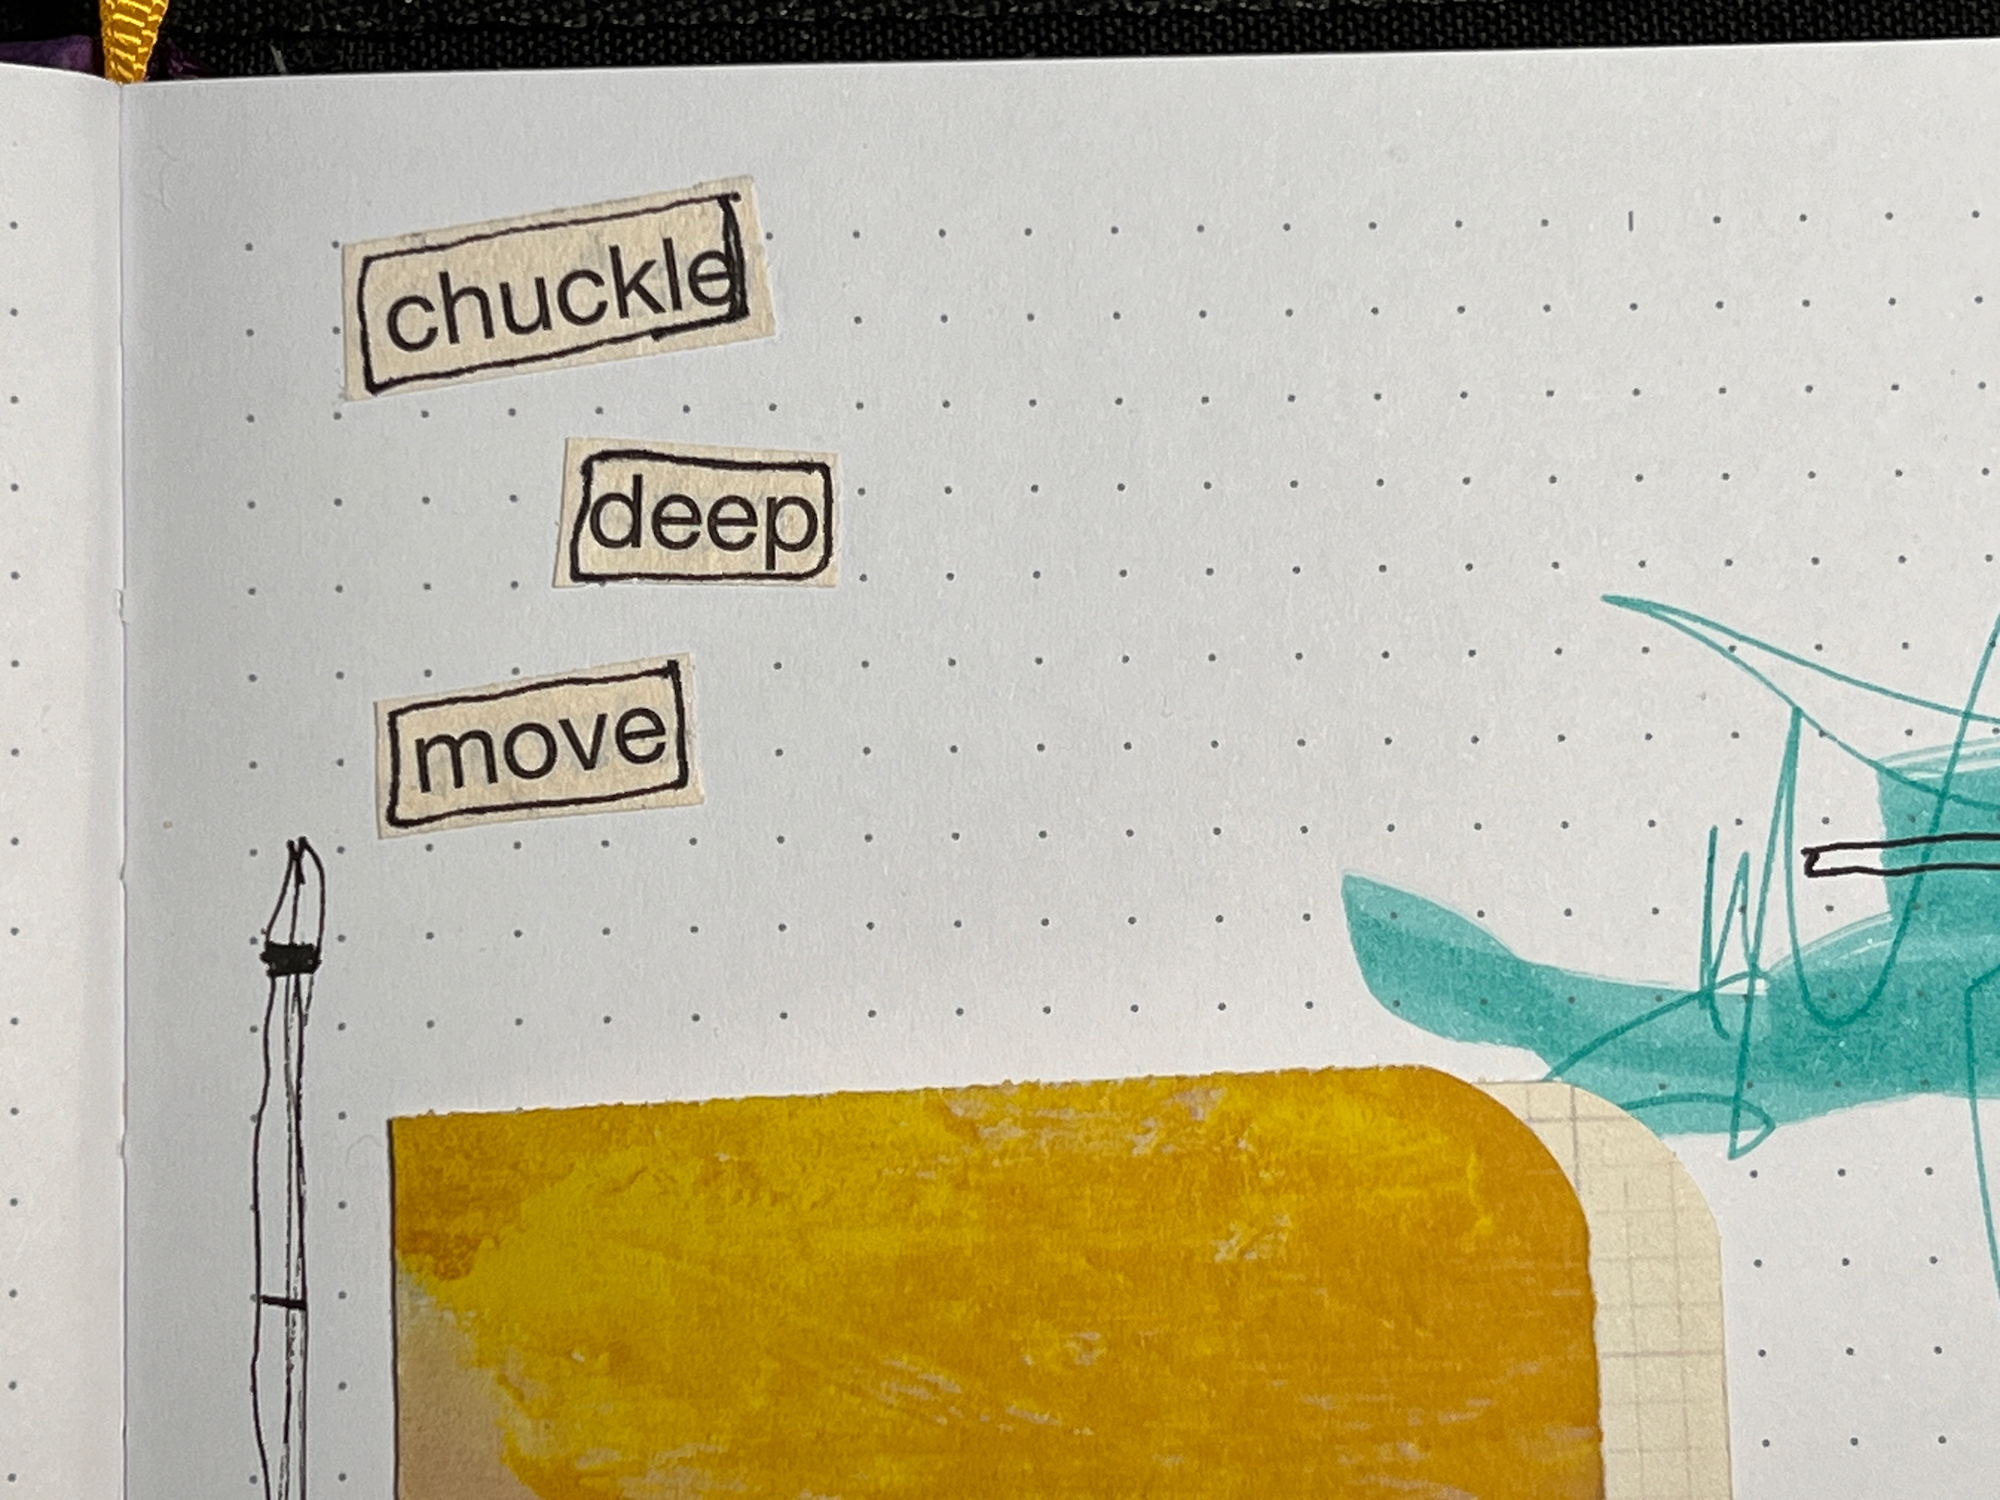 chuckle
deep
move